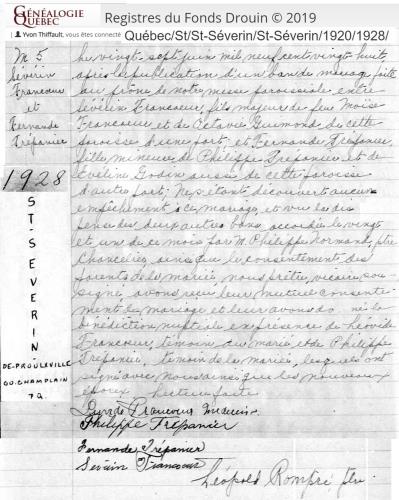 GÉNÉALOGIE QUÉBEC
Registres du Fonds Drouin © 2019
Yvon Thiffault, vous êtes connecté
Québec/St/St-Séverin/St-Séverin/1920/1928/
M 5
Séverin
Francoeur
et
Fernande
Trépanier
1928
ST-SEVERIN-
DE-PROULXVILLE
CO. CHAMPLAIN
Le vingt-sept juin mil neuf cent vingt huit,
après la publication d'un ban de mariage faite
au prône de notre messe paroissiale entre
Séverin Francoeur, fils majeur de feu Moïse
Francoeur et de Octavie Guimond de cette
paroisse d'une part; et Fernande Trépanier,
fille mineure de Philippe Trépanier et de
Evelina Godin aussi de cette paroisse
d'autre part; Ne s'étant découvert aucun
empêchement à ce mariage, et vu la dis
pense des deux autres bans accordée le vingt
et un de ce mois par M. Philippe Normand, ptre
Chancelier, ainsi que le consentement des
parents de la mariée, nous prêtre, vicaire sou-
signé avons reçu leur mutuel consente-
ment de mariage et leur avons donné la
bénédiction nuptiale en présence de
Francoeur, témoin du marié et de Philippe
Trépanier, témoin de la mariée, lesquels ont
signé avec nous ainsi que les nouveaux
époux. Lecture faite
Francoeur Medecin
Philippe Trépanier
Fernande Trépanier
Séverin Francoeur
Léopold Rompré ptre